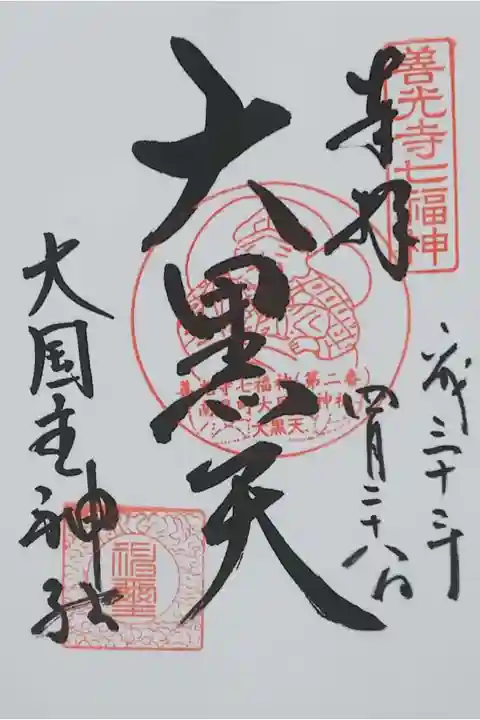 善光寺七福神
奉拝
平成三十年
四月二十八日
大黒天
善光寺七福神(第二番)
南県町大国主神社
大黒天
大国主神社